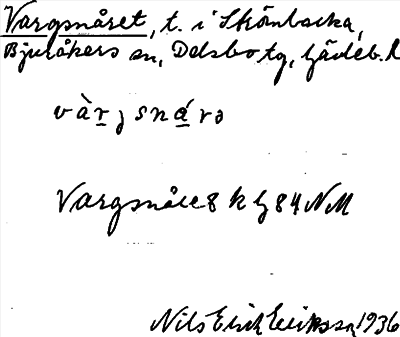 Vargsnåret, t. i Skånbacka,
Bjuråkers sn, Delsbo tg, Gävleb. l
vàr̲jsná̲rə
Vargsnåret 8 k G 84 NM
Nils Erik Eriksson 1936